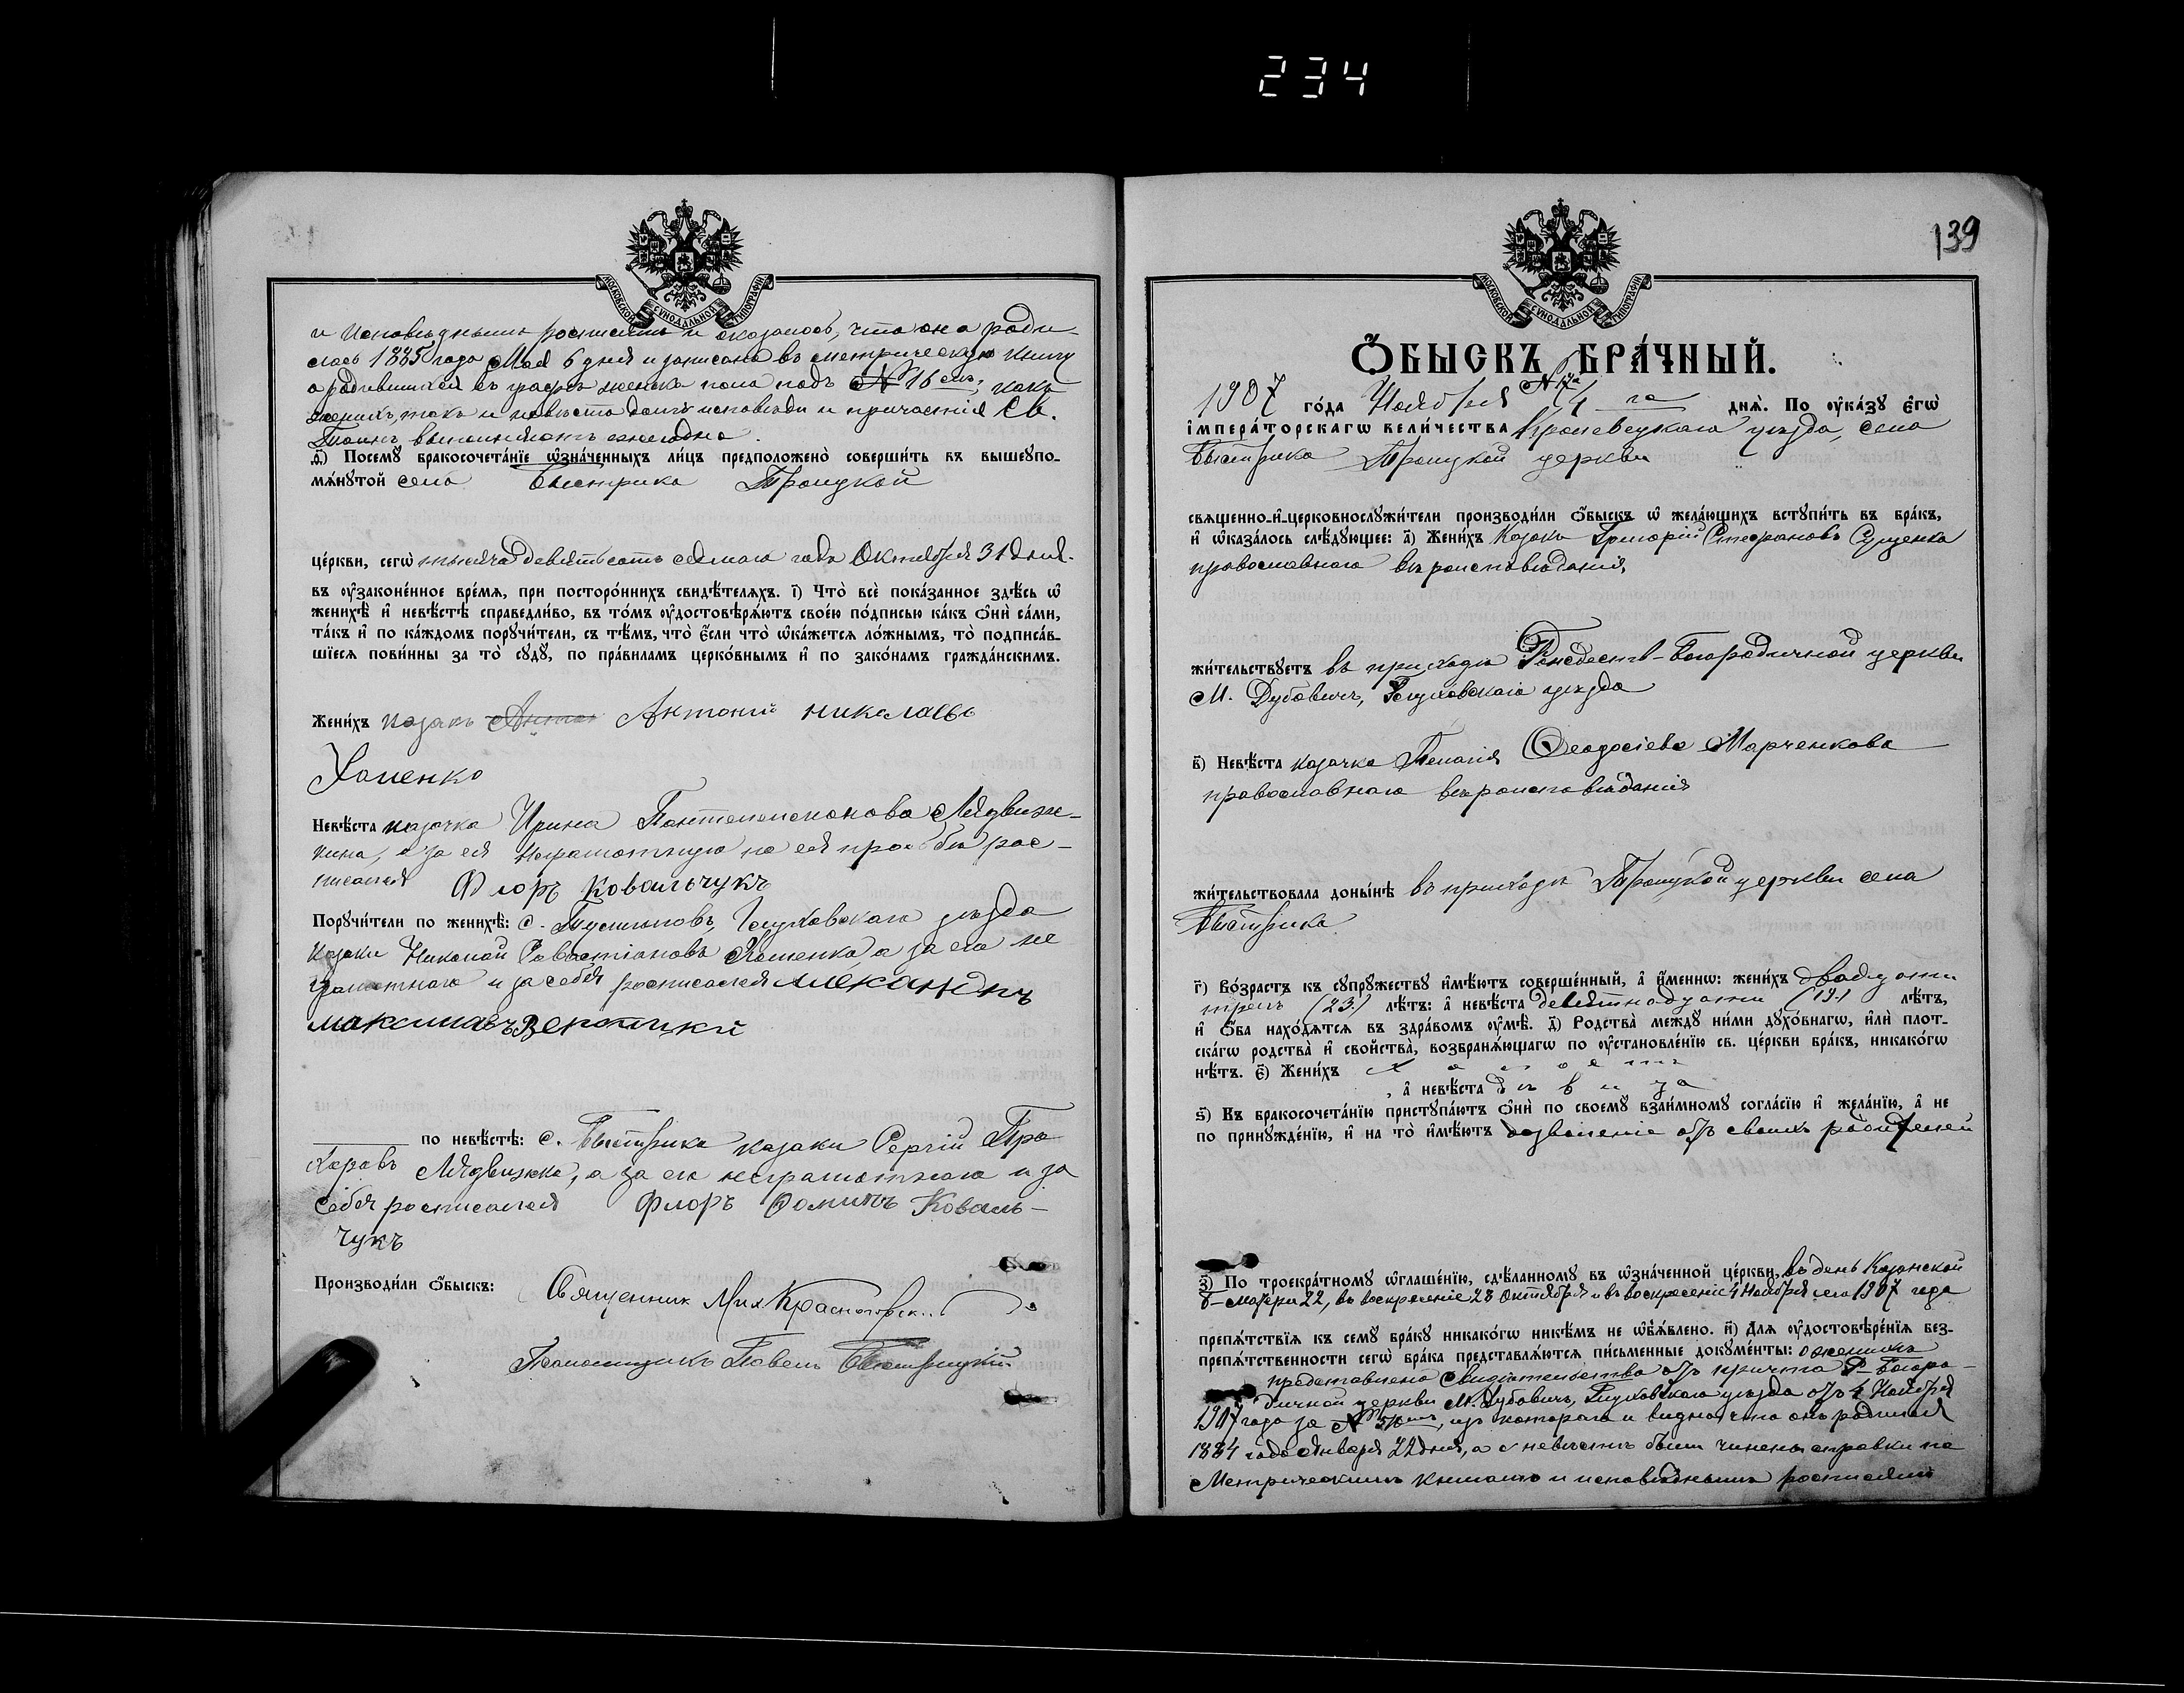 234
139
МОСКОВСКОЙ СѴНОДАЛЬНОЙ ТИПОГРАФІИ
и исповѣднымъ росписямъ и оказалось, что она роди-
лась 1885 года Мая 6 дня и записана въ метрическую книгу
о родившихся въ графѣ женска пола подъ № 16 емъ, какъ
женихъ, такъ и невѣста долгъ исповѣди и причастія Св.
Таинъ выполняютъ ежегодно.
ѳ҃) Посемꙋ бракосочета́нїе ѡзна́ченныхъ ли́цъ предположено̀ соверши́ть въ вышеꙋпо-
мѧ́нꙋтой села Быстрика Троицкой
це́ркви, сегѡ̀ тысяча девятьсотъ седмаго года Октября 31 дня.
въ ᲂу҆законе́нное вре́мѧ, при посторо́ннихъ свидѣ́телѧхъ. і҃) Что̀ всѐ пока́занное здѣ́сь ѡ҆
женихѣ̀ и҆ невѣ́стѣ справедли́во, въ то́мъ ᲂу҆достовѣрѧ́ютъ свое́ю по́дписью ка́къ ѻ҆нѝ са́ми,
та́къ и҆ по ка́ждомъ порꙋчи́тели, съ тѣ́мъ, что̀ є҆́сли что̀ ѡ҆ка́жетсѧ ло́жнымъ, то̀ подписа́в-
шїесѧ пови́нны за то̀ сꙋдꙋ̀, по пра́виламъ церко́внымъ и҆ по зако́намъ гражда́нскимъ.
Жени́хъ казакъ Антоній николаевъ
Хоменко
Невѣ́ста казачка Ирина Пантелеимонова Лядвиж-
кина, а за ея неграмотную по ея просьбѣ рос-
писался Флоръ Ковальчукъ
Порꙋчи́тели по женихѣ̀: с. Глуховскаго уѣзда
казаки Николай Хоменко, а за его не
грамотнаго и за себя росписался Александръ
максимовъ
по невѣ́стѣ: с. Быстрика казаки Сергій Про
хоровъ Лядвижка, а за его неграмотнаго и за
себя росписался Флоръ Ѳоминъ Коваль-
чукъ
Производи́ли ѻ҆́быскъ: Священник Мих Красногорск..
Псаломщикъ Павелъ Быстрицкій
МОСКОВСКОЙ СѴНОДАЛЬНОЙ ТИПОГРАФІИ
Ѻ҆́БЫСКЪ БРА́ЧНЫЙ.
1907 го́да Ноября 4 го днѧ̀. По ᲂу҆ка́зꙋ є҆гѡ̀
і҆мпера́торскагѡ вели́чества Кролевецкаго уѣзда, села
Быстрика Троицкой церкви
свѧщенно-и҆-церковнослꙋжи́тели производи́ли ѻ҆́быскъ ѡ҆ жела́ющихъ встꙋпи́ть въ бра́къ,
и҆ ѡ҆каза́лось слѣ́дꙋющее: а҃) Жени́хъ Казакъ Григорій Стефановъ Сущенко
православнаго вѣроисповѣданія,
жи́тельствꙋетъ въ приходѣ Рождеств-Богородичной церкви
М. Дубовичъ, Глуховскаго уѣзда
в҃) Невѣ́ста казачка Пелагія Ѳеодосіева Марченкова
православнаго вѣроисповѣданія
жи́тельствовала доны́нѣ въ приходѣ Троицкой церкви села
Быстрика.
г҃) Во́зрастъ къ сꙋпрꙋ́жествꙋ и҆мѣ́ютъ соверше́нный, а҆ и҆́менно: жени́хъ двадцати
трехъ (23.) лѣ́тъ: а҆ невѣ́ста девятнадцати (19.) лѣ́тъ,
и҆ ѻ҆́ба нахо́дѧтсѧ въ здра́вомъ ᲂу҆мѣ̀. д҃) Родства̀ междꙋ̀ ни́ми дꙋхо́внагѡ, и҆лѝ плот-
ска́гѡ родства̀ и҆ свойства̀, возбранѧ́ющагѡ по ᲂу҆становле́нїю св. це́ркви бра́къ, никако́гѡ
нѣ́тъ. є҃) Жени́хъ Холостъ
, а҆ невѣ́ста дѣвица
ѕ҃) Къ бракосочета́нїю пристꙋпа́ютъ ѻ҆нѝ по своемꙋ̀ взаи́мномꙋ согла́сїю и҆ жела́нїю, а҆ не
по принꙋжде́нїю, и҆ на то̀ и҆мѣ́ютъ дозволеніе отъ своихъ родителей
з҃) По троекра́тномꙋ ѡ҆глаше́нїю, сдѣ́ланномꙋ въ ѡ҆зна́ченной це́ркви, въ день Казанской
Б-Матери 22, въ воскресеніе 28 Октября и въ воскресеніе 4 Ноября сего 1907 года
препѧ́тствїѧ къ семꙋ̀ бра́кꙋ никако́гѡ никѣ́мъ не ѡ҆бъѧ́влено. и҃) Длѧ ᲂу҆достовѣре́нїѧ без-
препѧ́тственности сегѡ̀ бра́ка представлѧ́ютсѧ пи́сьменные докꙋме́нты: о женихѣ
представлено свидѣтельство отъ причта Р-Богоро-
дичной церкви М. Дубовичъ, Глуховскаго уѣзда отъ 4 Ноября
1907 года за № изъ котораго и видно, что онъ родился
1884 года Января 22 дня, а о невѣстѣ были чинены справки по
Метрическимъ книгамъ и исповѣднымъ росписямъ